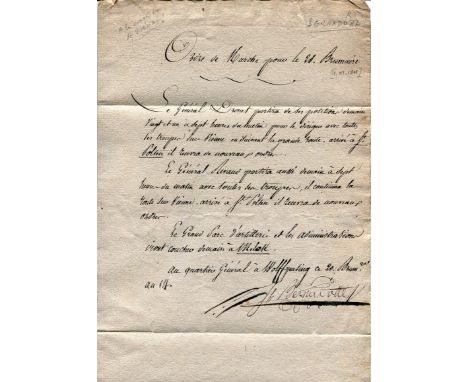 BERNADOTTE
Ordre de Marche pour le 21. Brumaire
Le Général Drouet partira de sa position demain
vingt-un à sept heures du matin pour se diriger avec toutes
ses troupes sur Vienne en suivant la grande route, arrivé à St.
Polten il trouvera de nouveaux ordres.
Le Général Rivaud partira aussi demain à sept
heures du matin avec toutes ses troupes, il continuera la
route sur Vienne, arrivé à St. Polten il trouvera de nouveaux
ordres.
Le Grand Parc d'artillerie et les administrations
iront coucher demain à Molck
au quartier Général à Wolffpassing ce 20. Brumre
an 14.
Bernadotte